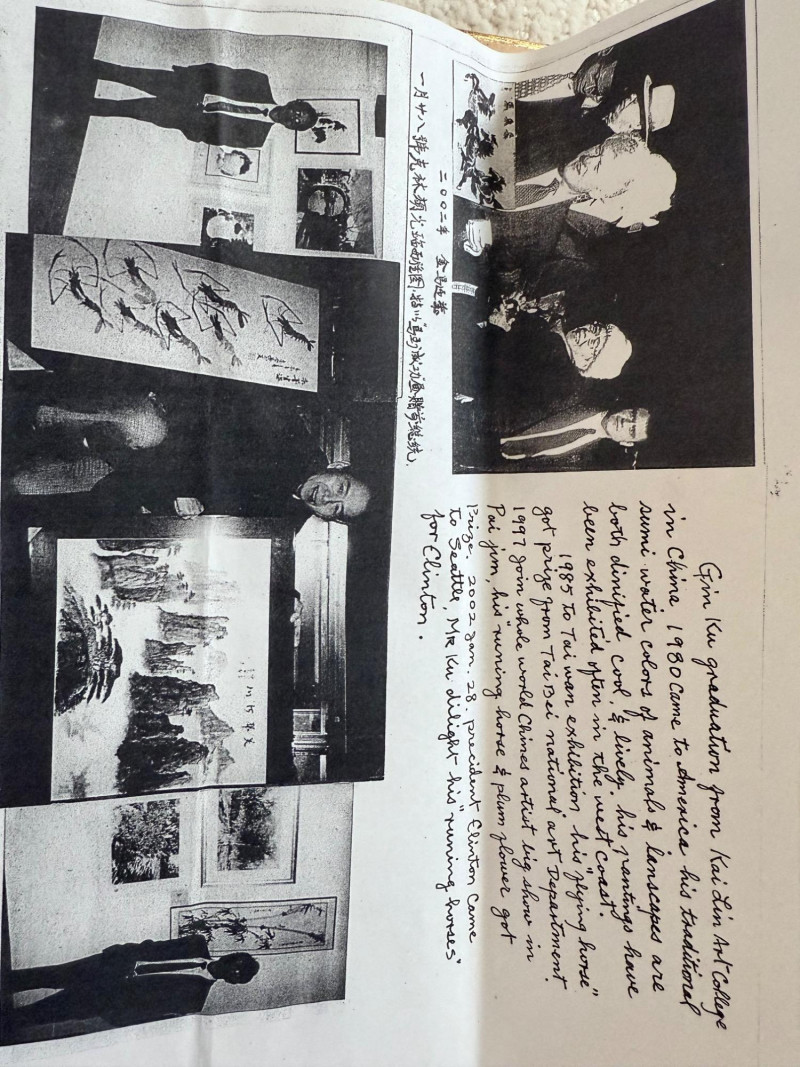 Gin Ku graduation from Kai Lin Art College
in Chine 1980 Came to America his traditional
sumi water colors of animals & lanscapes are
both dinified cool, & lively. his pantings have
been exhibited often in the west coast.
1985 to Tai wan exhibition his "flying horse"
got prize from Tai Bei national art Department
1997 join whole world Chines artist big show in
Pai jim, his "runing horse & plum flower got
Prize. 2002 Jan. 28. precident Clinton Came
to Seattle, MR Ku dilight his "runing horses"
for Clinton.
二〇〇二年 金马迎
一月廿八號克林頓光臨西雅图,特以"马到成功画贈前總统.